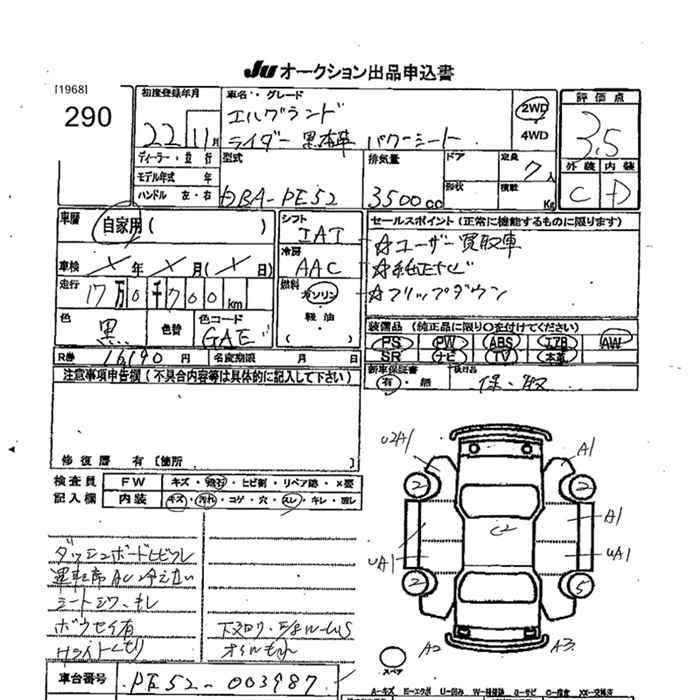 JU オークション出品申込書
[1968]
290
初度登録年月
22 11月
車名・グレード
エルグランド
ライダー 黒本革 パワーシート
2WD
4WD
評価点
3.5
外装 内装
C D
ディーラー・並行
モデル年式 年
ハンドル 左・右
型式
DBA-PE52
排気量
3500cc
ドア
形状
定員
7人
積載
Kg
車歴
自家用( )
シフト
IAT
セールスポイント(正常に機能するものに限ります)
☆ユーザー買取車
☆純正ナビ
☆フリップダウン
車検 X年X月(X日)
冷房
AAC
走行
17万0千700km
燃料
ガソリン
軽油
( )
色
黒
色替
色コード
GAE
装備品(純正品に限り○を付けてください)
PS PW ABS エアB AW
SR ナビ TV 本革
R券 16190円 名変期限 月 日
新車保証書
有・無
保・取
注意事項申告欄(不具合内容等は具体的に記入して下さい)
修復歴 有[箇所 ]
検査員
記入欄
FW キズ・飛石・ヒビ割・リペア跡・X要
内装 キズ・汚れ・コゲ・穴・スレ・キレ
U2A1
A1
2
2
A1
C2
UA1
UA1
2
5
A2
A3
スペア
ダッシュボードヒビワレ
運転席AC冷えない
シートシワ、キレ
ボウセイ有
Hライトくもり
下スリ
オイルもれ
車台番号
PE52-003987
A-キズ E-エクボ U-凹み